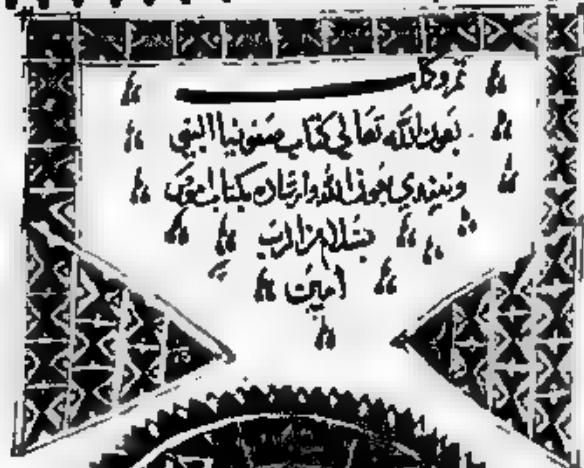 تم وكمل
بعون الله تعالي كتاب صفونيا النبي
ونبتدي بعون الله وارشاده بكتاب
بسلام من الرب
امين